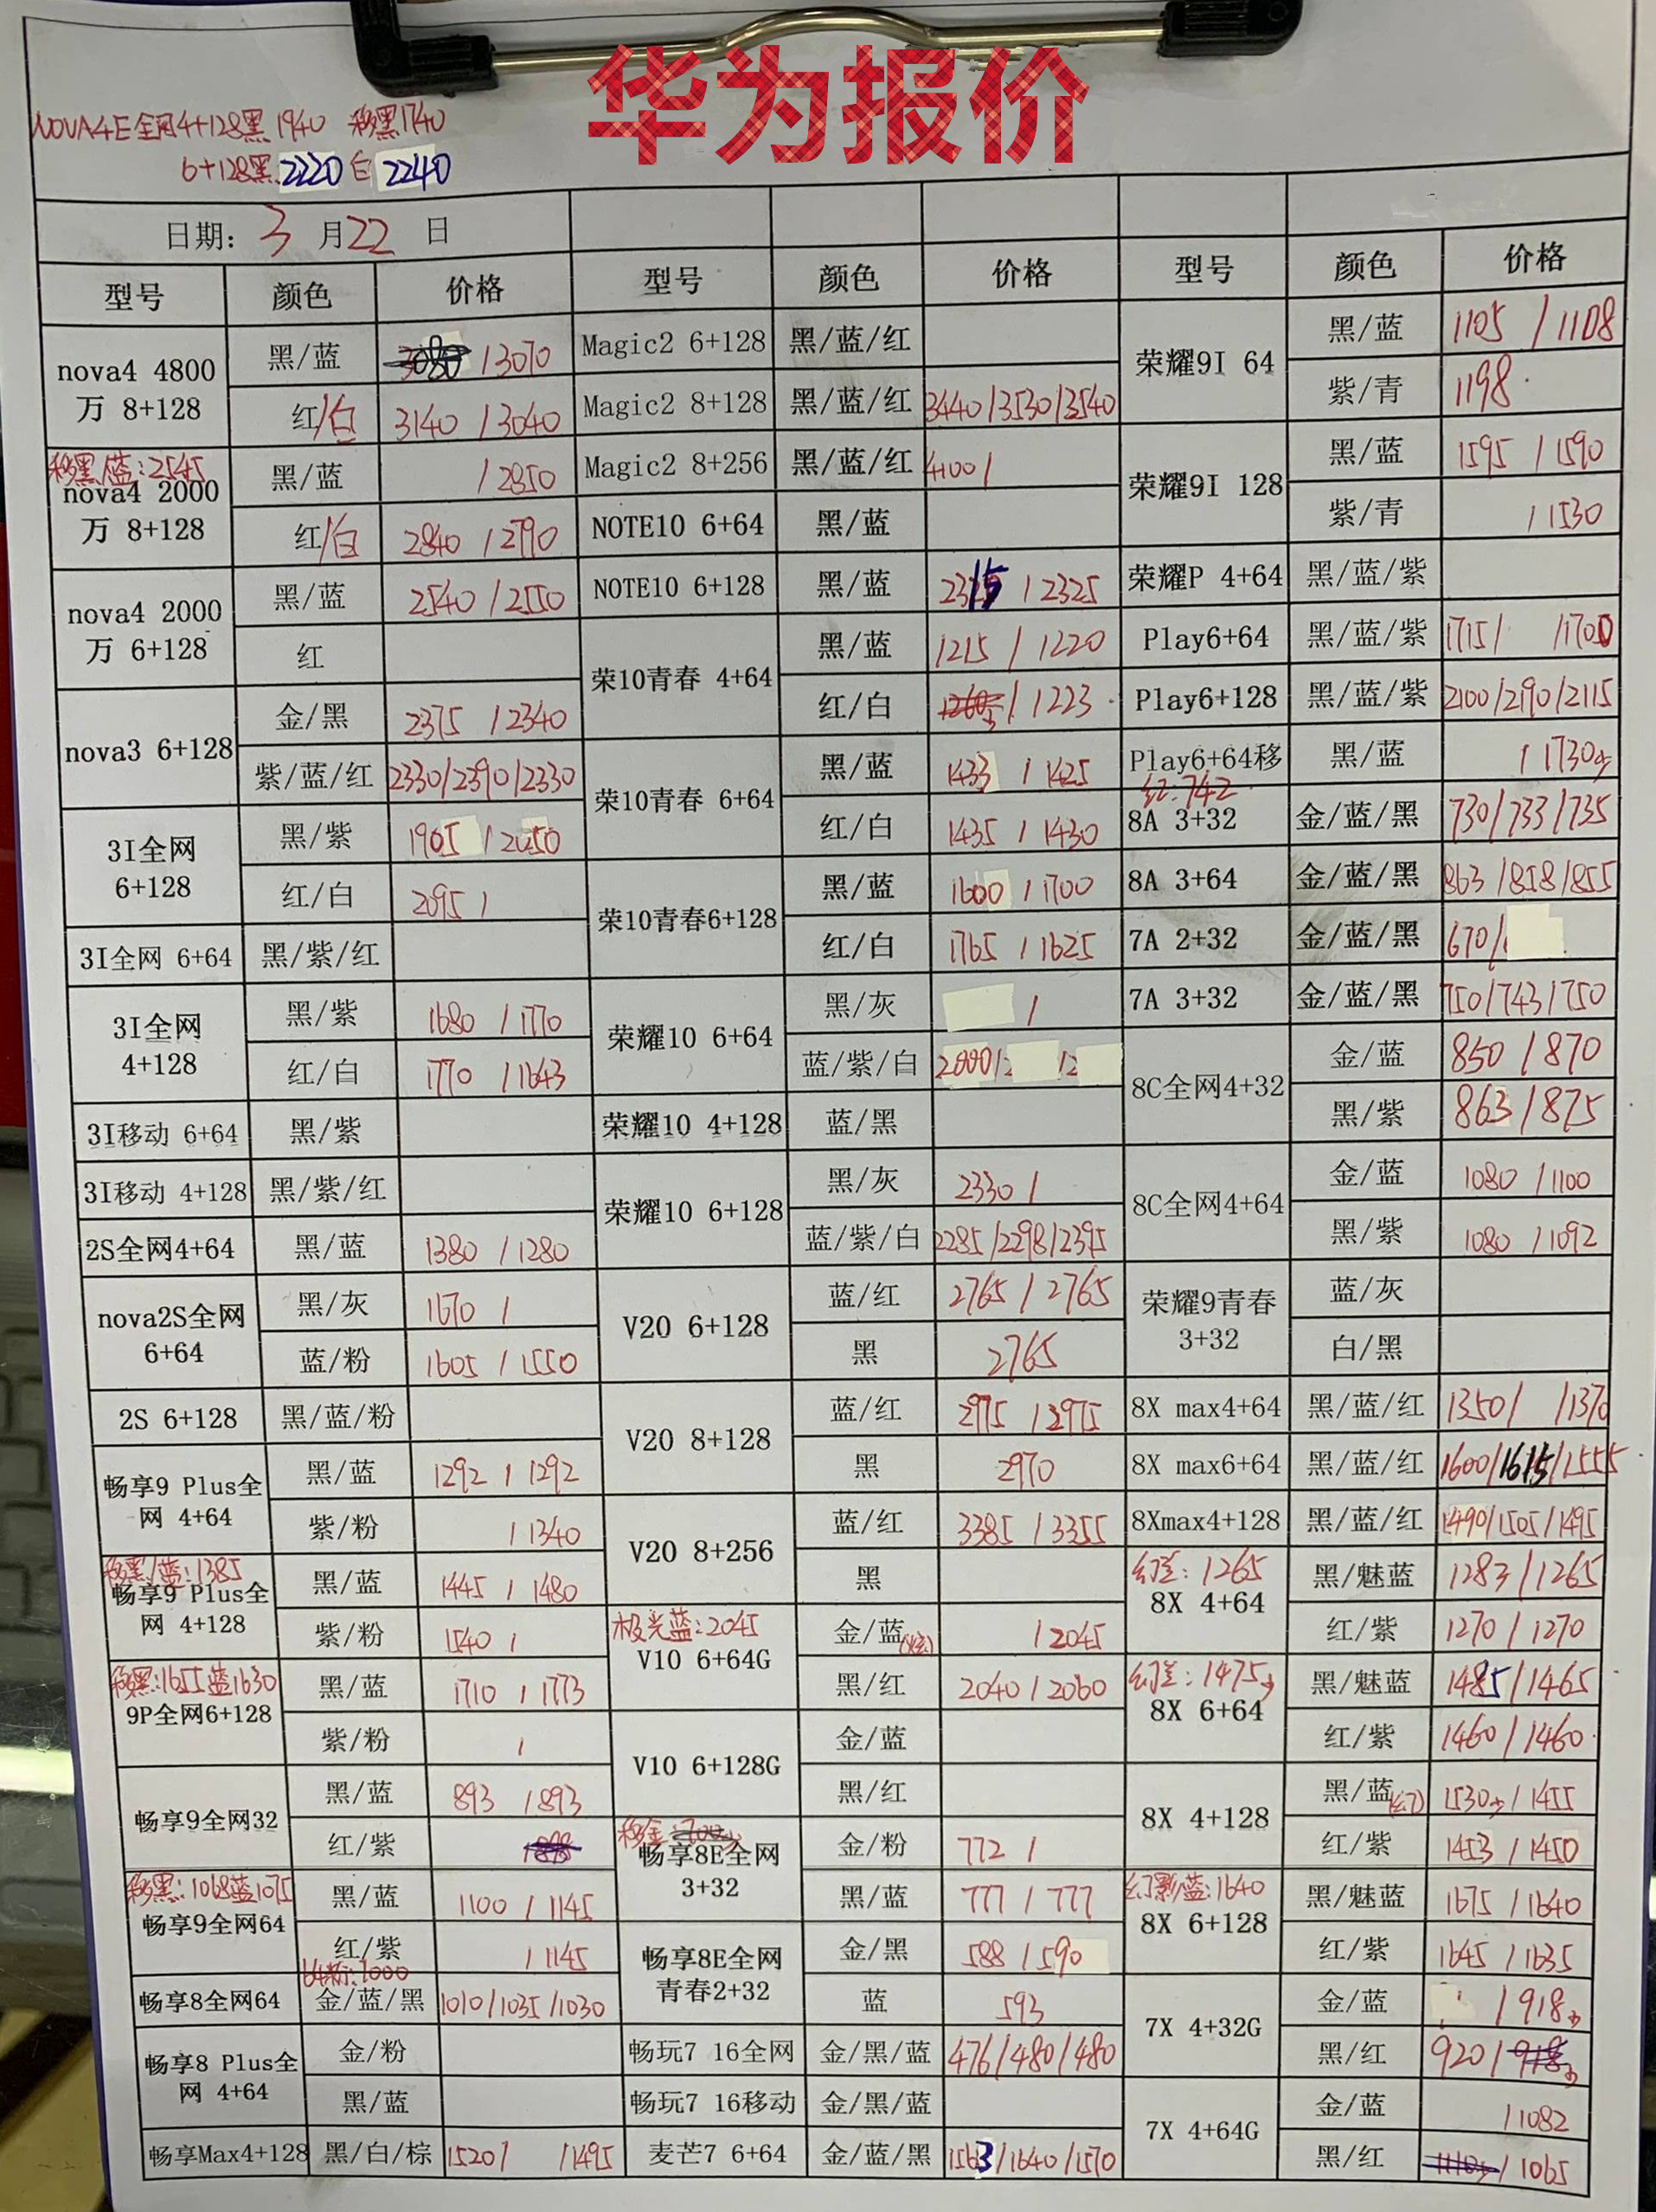 华为报价
NOVA4E全网4+128黑1940 移黑1740
6+128黑2220白2240
日期: 3 月22 日
型号 颜色 价格 型号 颜色 价格 型号 颜色 价格
nova4 4800
万 8+128
黑/蓝 /3070
红/白 3140 /3040
移黑/蓝:2545
nova4 2000
万 8+128
黑/蓝 /2850
红/白 2840 /2790
nova4 2000
万 6+128
黑/蓝 2540 /2550
红
nova3 6+128
金/黑 2375 /2340
紫/蓝/红 2330/2390/2330
3I全网
6+128
黑/紫 1905 /2050
红/白 2095 /
3I全网 6+64 黑/紫/红
3I全网
4+128
黑/紫 1680 /1770
红/白 1770 /1643
3I移动 6+64 黑/紫
3I移动 4+128 黑/紫/红
2S全网4+64 黑/蓝 1380 /1280
nova2S全网
6+64
黑/灰 1670 /
蓝/粉 1605 /1550
2S 6+128 黑/蓝/粉
畅享9 Plus全
网 4+64
黑/蓝 1292 / 1292
紫/粉 /1340
移黑/蓝:1385
畅享9 Plus全
网 4+128
黑/蓝 1445 / 1480
紫/粉 1540 /
移黑:1655蓝1630
9P全网6+128
黑/蓝 1710 / 1773
紫/粉 /
畅享9全网32
黑/蓝 893 /893
红/紫
移黑:1068蓝1075
畅享9全网64
黑/蓝 1100 /1145
红/紫 /1145
64粉:1000
畅享8全网64 金/蓝/黑 1010/1035/1030
畅享8 Plus全
网 4+64
金/粉
黑/蓝
畅享Max4+128 黑/白/棕 1520/ /1495
Magic2 6+128 黑/蓝/红
Magic2 8+128 黑/蓝/红 3440/3530/3540
Magic2 8+256 黑/蓝/红 4100/
NOTE10 6+64 黑/蓝
NOTE10 6+128 黑/蓝 2315 /2325
荣10青春 4+64
黑/蓝 1215 / 1220
红/白 / 1223
荣10青春 6+64
黑/蓝 1433 / 1425
红/白 1435 / 1430
荣10青春6+128
黑/蓝 1600 /1700
红/白 1765 / 1625
荣耀10 6+64
黑/灰 /
蓝/紫/白 2000/2 /2
荣耀10 4+128 蓝/黑
荣耀10 6+128
黑/灰 2330 /
蓝/紫/白 2285/2298/2395
V20 6+128
蓝/红 2765 / 2765
黑 2765
V20 8+128
蓝/红 2975 /2975
黑 2970
V20 8+256
蓝/红 3385 /3355
黑
极光蓝:2045
V10 6+64G
金/蓝 /2045
黑/红 2040 /2060
V10 6+128G
金/蓝
黑/红
畅享8E全网
3+32
金/粉 772 /
黑/蓝 777 / 777
畅享8E全网
青春2+32
金/黑 588 /590
蓝 593
畅玩7 16全网 金/黑/蓝 476/480/480
畅玩7 16移动 金/黑/蓝
麦芒7 6+64 金/蓝/黑 1563/1640/1570
荣耀9I 64
黑/蓝 1105 /1108
紫/青 1198
荣耀9I 128
黑/蓝 1595 /1590
紫/青 /1530
荣耀P 4+64 黑/蓝/紫
Play6+64 黑/蓝/紫 1715/ /1700
Play6+128 黑/蓝/紫 2100/2190/2115
Play6+64移 黑/蓝 /1730少
红:742
8A 3+32 金/蓝/黑 730/733/735
8A 3+64 金/蓝/黑 863/858/855
7A 2+32 金/蓝/黑 670/
7A 3+32 金/蓝/黑 750/743/750
8C全网4+32
金/蓝 850 /870
黑/紫 863/875
8C全网4+64
金/蓝 1080 /1100
黑/紫 1080 /1092
荣耀9青春
3+32
蓝/灰
白/黑
8X max4+64 黑/蓝/红 1350/ /1370
8X max6+64 黑/蓝/红 1600/1615/1555
8Xmax4+128 黑/蓝/红 1490/1505/1495
幻蓝:1265
8X 4+64
黑/魅蓝 1283/1265
红/紫 1270/1270
幻蓝:1475少
8X 6+64
黑/魅蓝 1485/1465
红/紫 1460/1460
8X 4+128
黑/蓝(幻) 1530少/1455
红/紫 1453 /1450
幻影蓝:1640
8X 6+128
黑/魅蓝 1675 /1640
红/紫 1645 /1635
7X 4+32G
金/蓝 /918少
黑/红 920/
7X 4+64G
金/蓝 /1082
黑/红 /1065